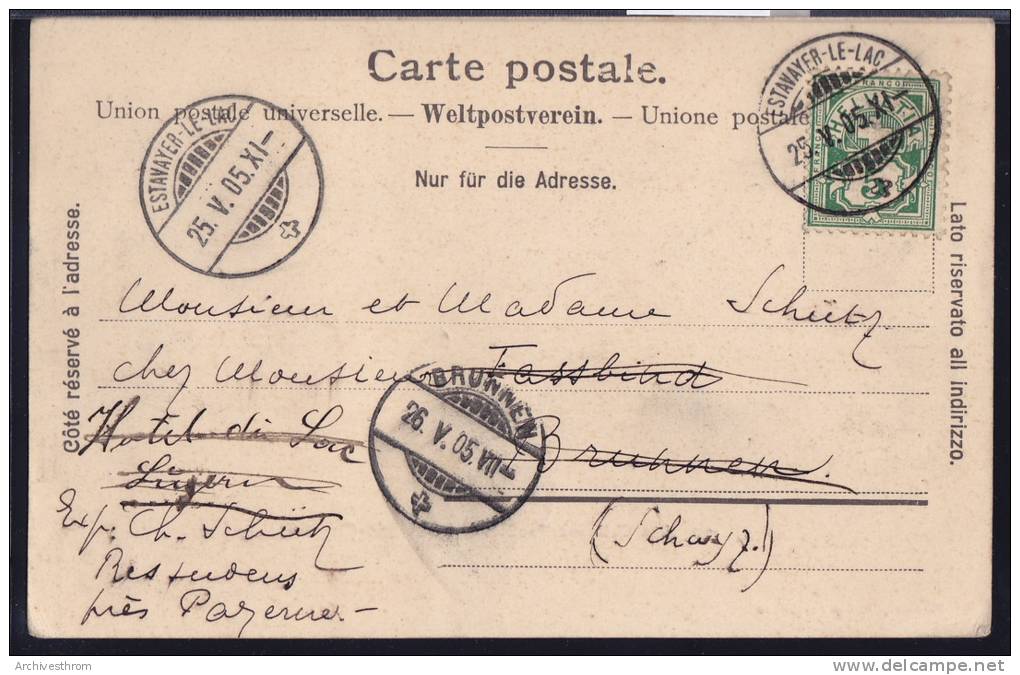 Carte postale.
Union postale universelle. — Weltpostverein. — Unione postale
Nur für die Adresse.
ESTAVAYER-LE-LAC
25.V.05.XI-
ESTAVAYER-LE-LAC
25.V.05.XI-
FRANCO
5
Côté réservé à l'adresse.
Lato riservato all indirizzo.
Monsieur et Madame Schütz
chez Monsieur Fassbind
BRUNNEN
26.V.05.VII-
Hotel du Lac Brunnen.
Luzern
(Schwyz.)
Exp. Ch. Schütz
Ressudens
près Payerne-
Archivesthrom
www.delcampe.net